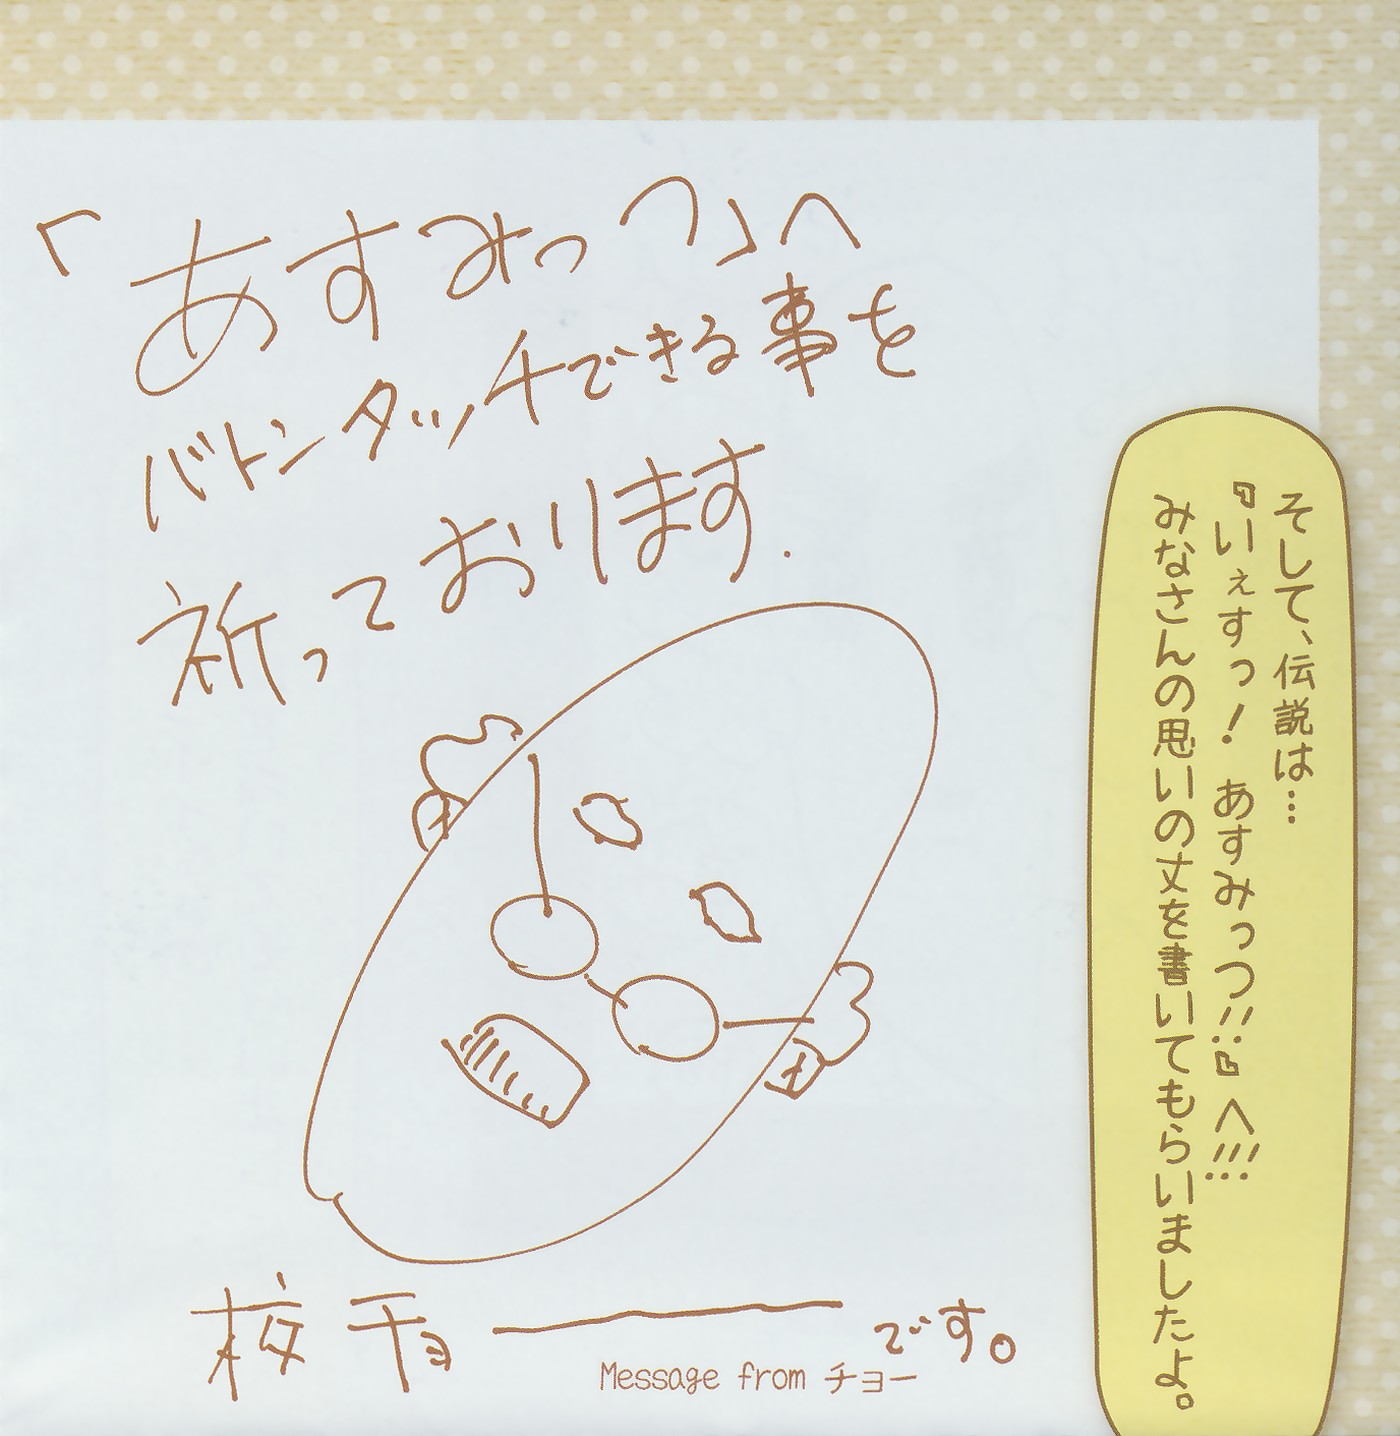 「あすみっつ」へ
バトンタッチできる事を
祈っております.
校チョーです。
Message from チョー
そして、伝説は…
『いぇすっ！ あすみっつ!!』へ!!!
みなさんの思いの丈を書いてもらいましたよ。